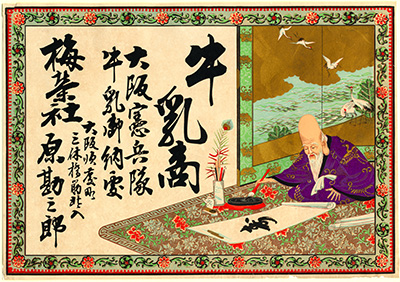 牛乳商
大阪憲兵隊
牛乳御納処
大阪順慶町
三休橋筋北入
梅栄社 原勘三郎
壽